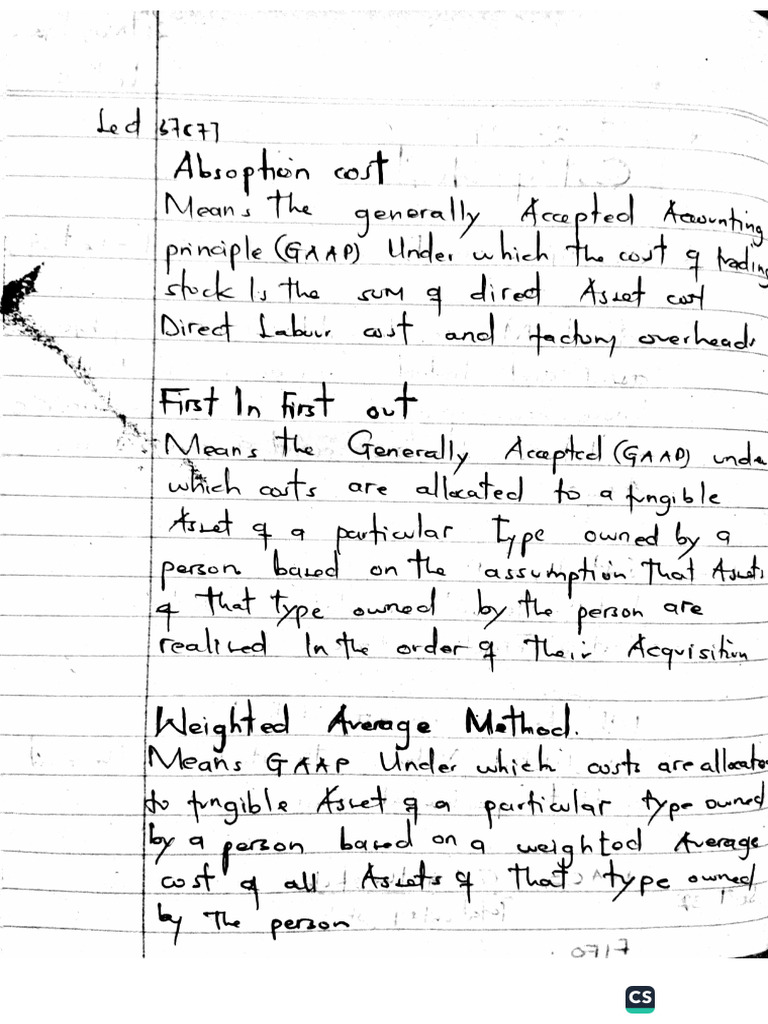 Sec 37(7)
Absoption cost
Means The generally Accepted Accounting
principle (GAAP) Under which the cost of trading
stock Is the sum of direct Asset cost
Direct Labour cost and factory overheads
First In First out
Means the Generally Accepted (GAAP) under
which costs are allocated to a fungible
Asset of a particular type owned by a
person based on the assumption that Assets
of that type owned by the person are
realised In the order of their Acquisition
Weighted Average Method.
Means GAAP Under which costs are allocated
to fungible Asset of a particular type owned
by a person based on a weighted Average
cost of all Assets of that type owned
by The person
CS